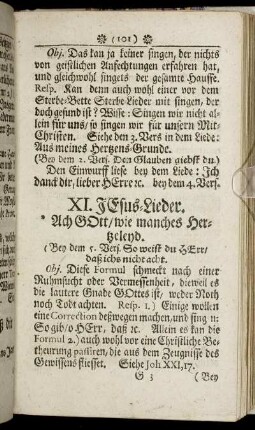 (101)
Obj. Das kan ja keiner singen, der nichts
von geistlichen Anfechtungen erfahren hat,
und gleichwohl singets der gesamte Hauffe.
Resp. Kan denn auch wohl einer vor dem
Sterbe-Bette Sterbe-Lieder mit singen, der
doch gesund ist? Wisse: Singen wir nicht al-
lein für uns/ so singen wir für unsern Mit-
Christen. Siehe den 2. Vers in dem Liede:
Aus meines Hertzens-Grunde.
(Bey dem 2. Vers. Den Glauben giebst du.)
Den Einwurff liese bey dem Liede: Ich
danck dir, lieber HErre ꝛc. bey dem 4. Vers.
XI. JEsus-Lieder.
* Ach GOtt/ wie manches Her-
tzeleyd.
(Bey dem 5. Vers. So weist du HErr/
daß ichs nicht acht.
Obj. Diese Formul schmeckt nach einer
Ruhmsucht oder Vessenheit, dieweil es
die lautere Gnade GOttes ist, weder Noth
noch Todt achten. Resp. 1.) Einige wollen
eine Correction deßwegen machen, und sing n:
So gib/ o HErr, daß ꝛc. Allein es kan die
Formul 2.) auch wohl vor eine Christliche Be-
theurung passiren, die aus dem Zeugnisse des
Gewissens fliesset. Siehe Joh XXI, 17.
G 3 (Bey